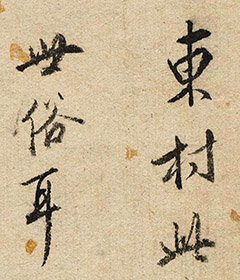 東村此
世俗耳